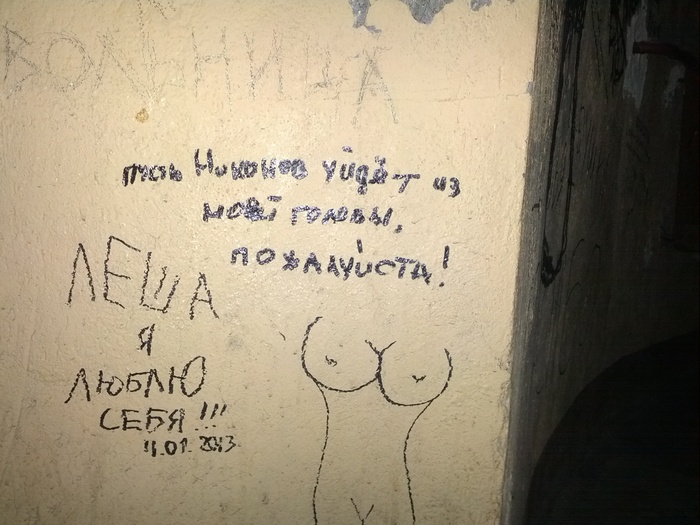 ВОЛЬНИЦА
пусть Никонов уйдёт из
моей головы,
пожалуйста!
ЛЕША
Я
ЛЮБЛЮ
СЕБЯ!!!
11.01.2013